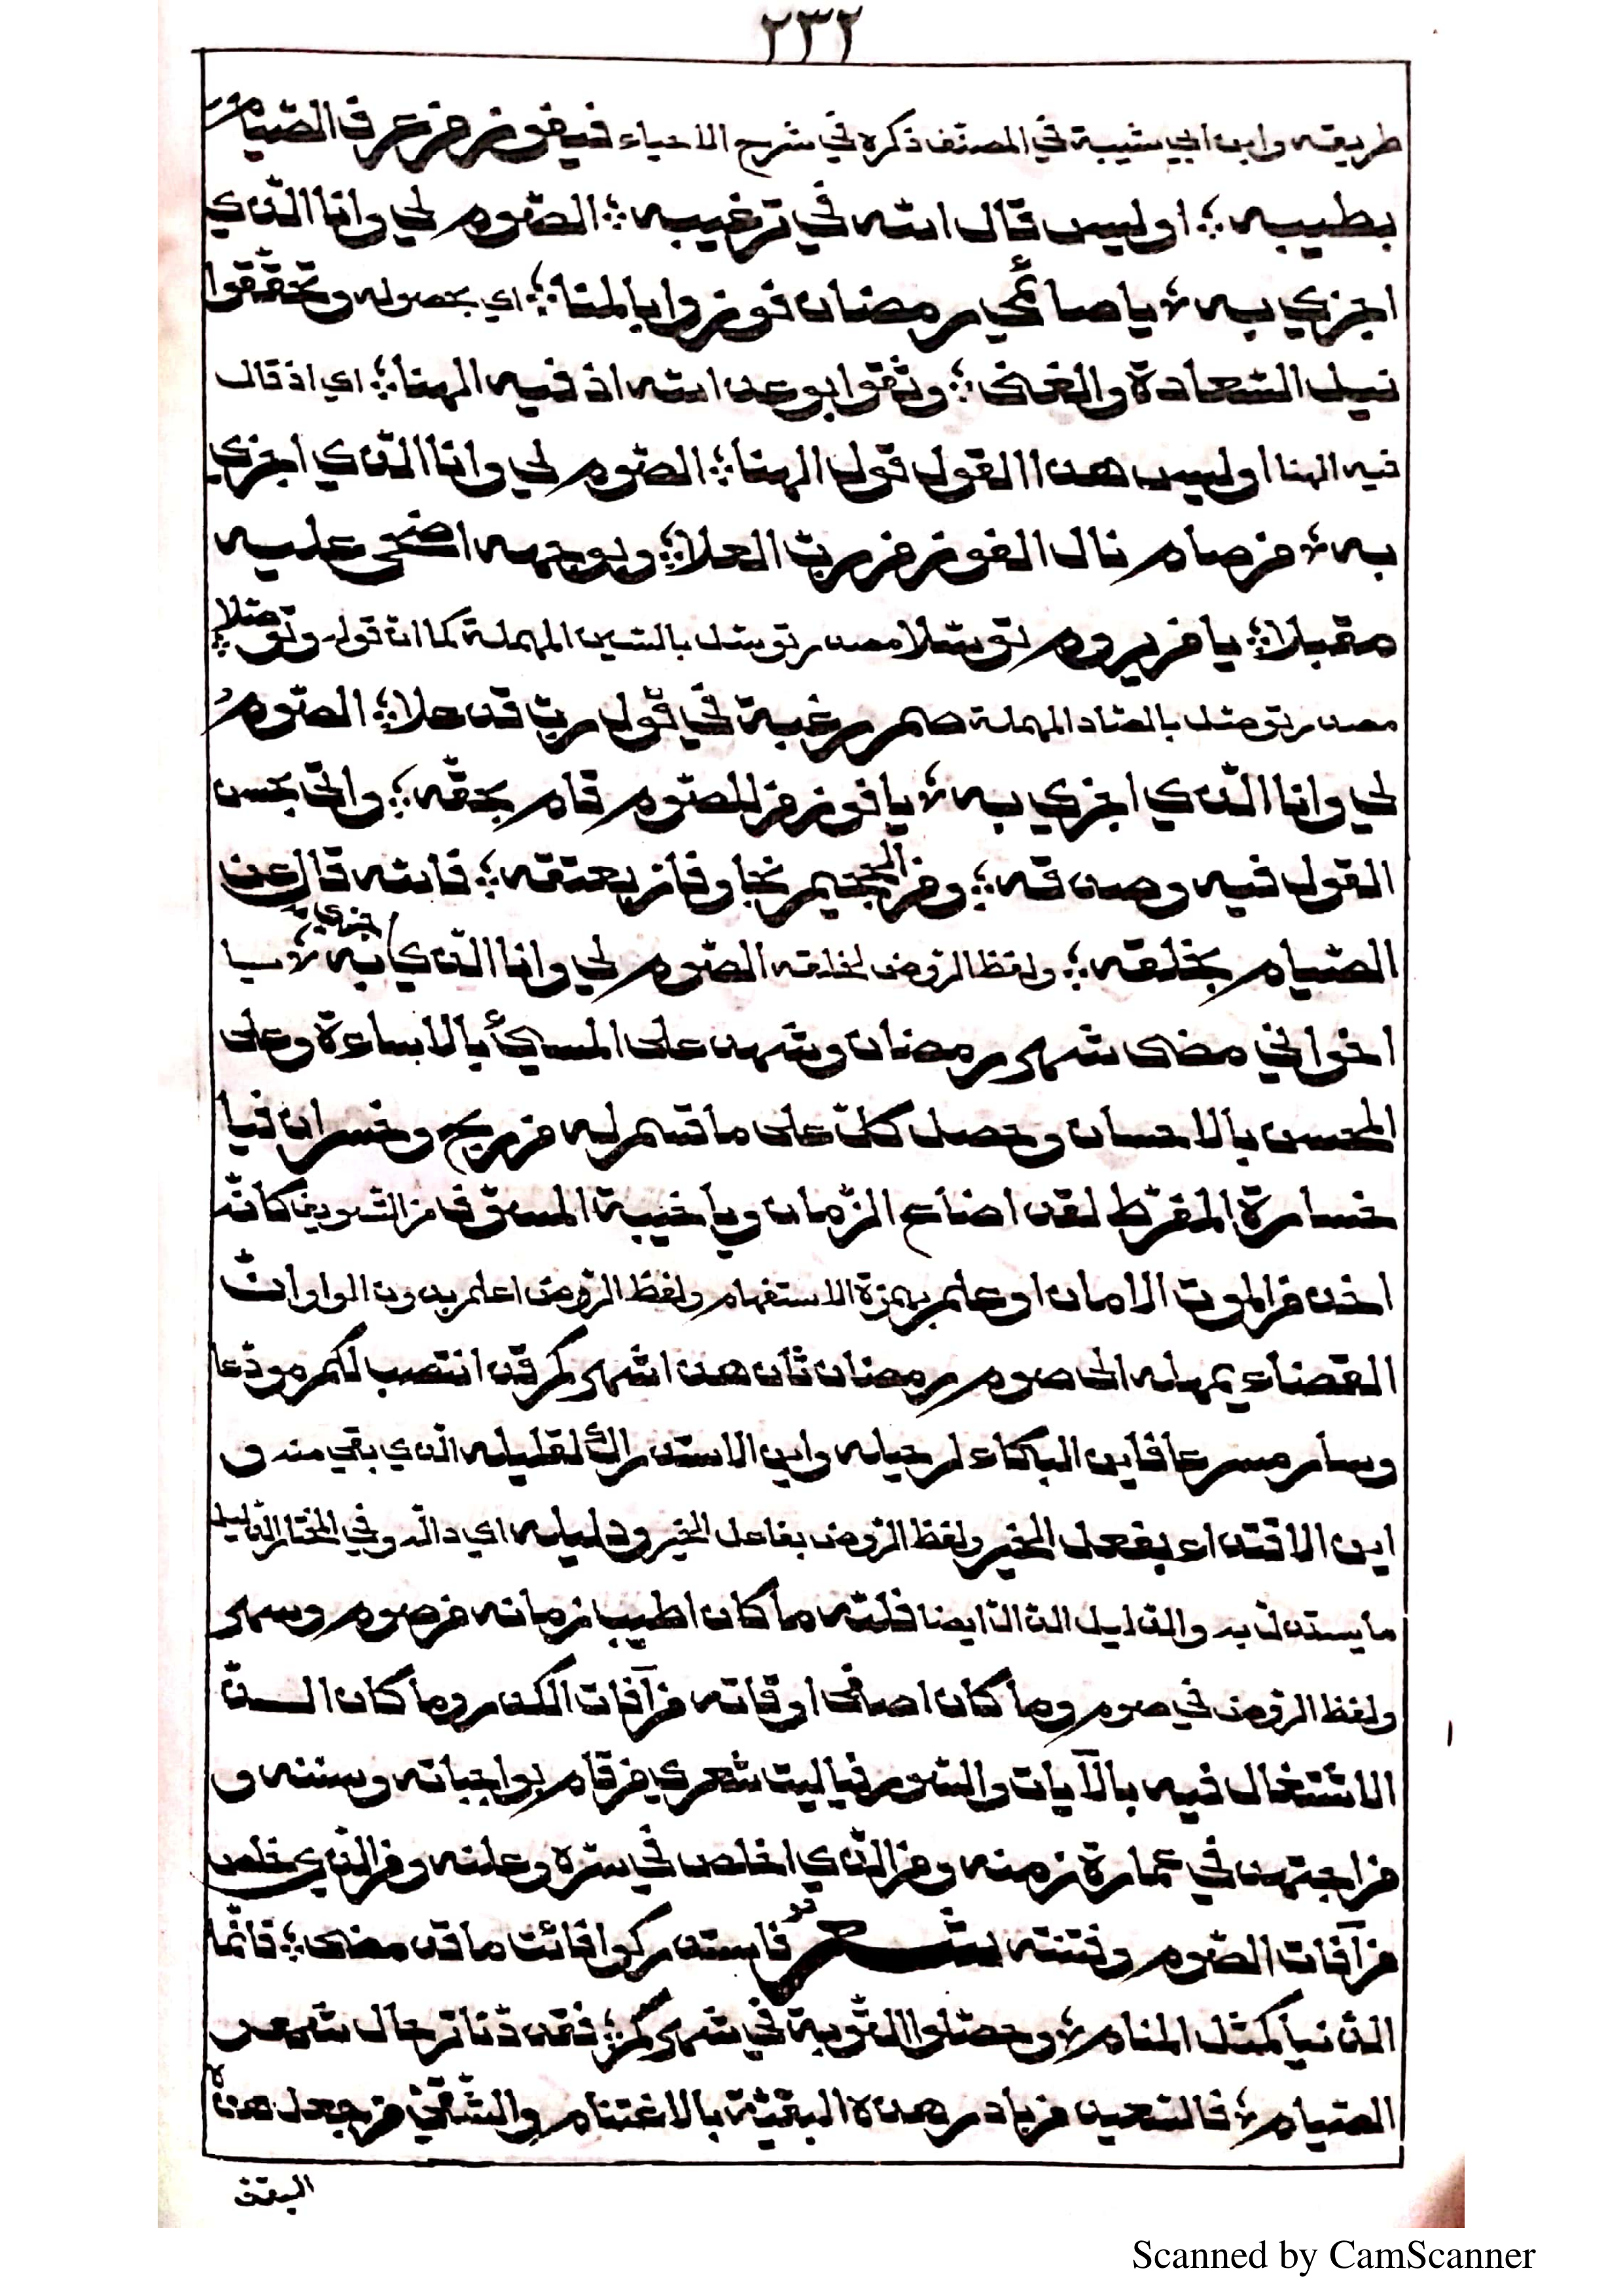 ٢٣٢
طريقه وابن ابي شيبة في المصنف ذكره في شرح الاحياء فيفوز من عرف الصيام
بطيبه ؛ اوليس قال الله في ترغيبه ؛ الصوم لي وانا الذي
اجزي به ؛ يا صائمي رمضان فوزوا بالمنا ؛ اي بحصوله وتحققوا
نيل السعادة والغنى ؛ وثقوا بوعد الله اذ فيه الهنا ؛ اي اذ قال
فيه الهنا اوليس هذا القول قول الهنا ؛ الصوم لي وانا الذي اجزي
به ؛ من صام نال الفوز من رب العلا ؛ وبوجهه اضحى عليه
مقبلا ؛ يا من يروم توسّلا مصدر توسّل بالسين المهملة كما ان قوله وتوصّلا ؛
مصدر توصّل بالصاد المهملة صم رغبة في قول رب قد علا ؛ الصوم
لي وانا الذي اجزي به ؛ يا فوز من للصوم قام بحقه ؛ واتى بحسن
القول فيه وصدقه ؛ ومن الجحيم نجا وفاز بعتقه ؛ فالله قال عن
الصيام بخلقه ؛ ولفظ الروض لخلقه الصوم لي وانا الذي اجزي به ؛ يا
اخواني مضى شهر رمضان وشهد على المسيئ بالاساءة وعلى
المحسن بالاحسان وحصل كل على ما قسم له من ربح وخسران فيا
خسارة المفرّط لقد اضاع الزمان ويا خيبة المسوّف من التسويف كانّه
اخذ من الموت الامان اوعلم بهمزة الاستفهام ولفظ الروض اعلم بدون الواو انّ
القضاء يمهله الى صوم رمضان ثان هذا شهركم قد انتصب لكم مودّعا
وسار مسرعا فاين البكاء لرحيله واين الاستدراك لقليله الذي بقي منه و
اين الاقتداء بفعل الخير ولفظ الروض بفاعل الخير ودليله اي دالّه وفي المختار الدليل
ما يستدلّ به والدليل الدالّ ايضا فلله ما كان اطيب زمانه من صوم وسهر
ولفظ الروض في صوم وما كان اصفى اوقاته من آفات الكدر وما كان الذّ
الاشتغال فيه بالآيات والسور فيا ليت شعري من قام بواجباته وسننه و
من اجتهد في عمارة زمنه ومن الذي اخلص في سرّه وعلنه ومن الذي خلص
من آفات الصوم وفتنه شعر فاستدركوا فائت ما قد مضى ؛ فانّما
الدنيا كمثل المنام ؛ وحصّلوا التوبة في شهركم ؛ فقد دنا ترحال شهر
الصيام ؛ فالسعيد من بادر هذه البقيّة بالاغتنام والشقيّ من جعل هذه
البقية
Scanned by CamScanner